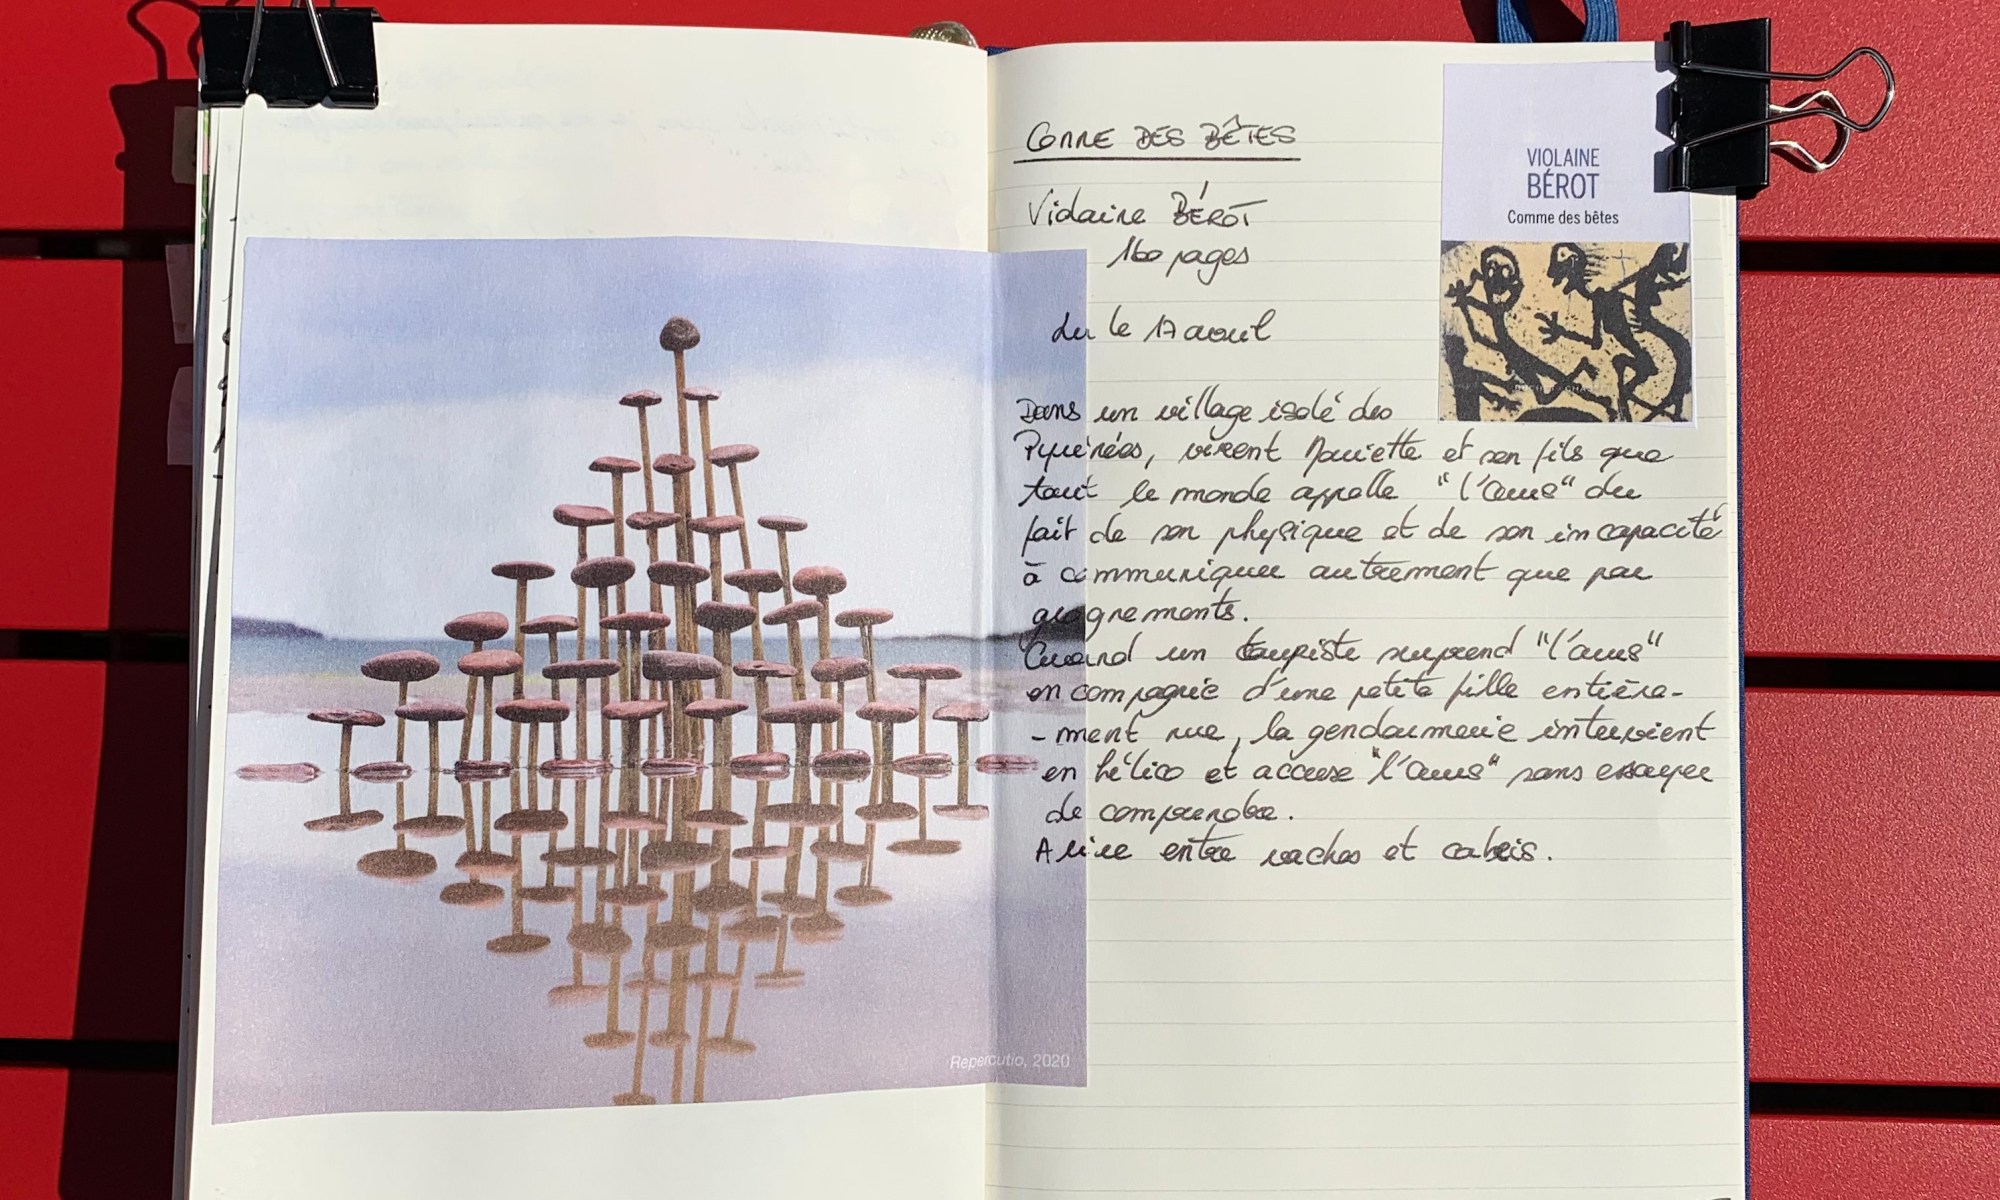 COMME DES BÊTES
Violaine BÉROT
160 pages
Lu le 17 août
VIOLAINE
BÉROT
Comme des bêtes
Dans un village isolé des
Pyrénées, vivent Mariette et son fils que
tout le monde appelle "l'ours" du
fait de son physique et de son incapacité
à communiquer autrement que par
grognements.
Quand un touriste surprend "l'ours"
en compagnie d'une petite fille entière-
-ment nue, la gendarmerie intervient
en hélico et accuse "l'ours" sans essayer
de comprendre.
A lire entre vaches et cabris.
Repercutio, 2020